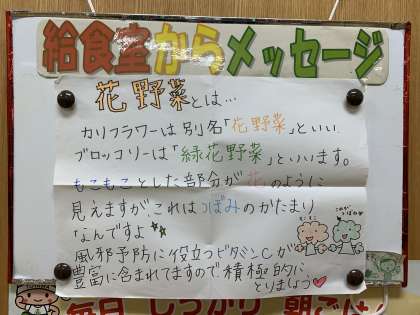 給食室からメッセージ
花野菜とは…
カリフラワーは別名「花野菜」といい
ブロッコリーは「緑花野菜」といいます。
もこもことした部分が花のように
見えますが、これはつぼみのかたまり
なんですよ
風邪予防に役立つビタミンCが
豊富に含まれてますので積極的に
とりましょう
毎日しっかり朝ごはん